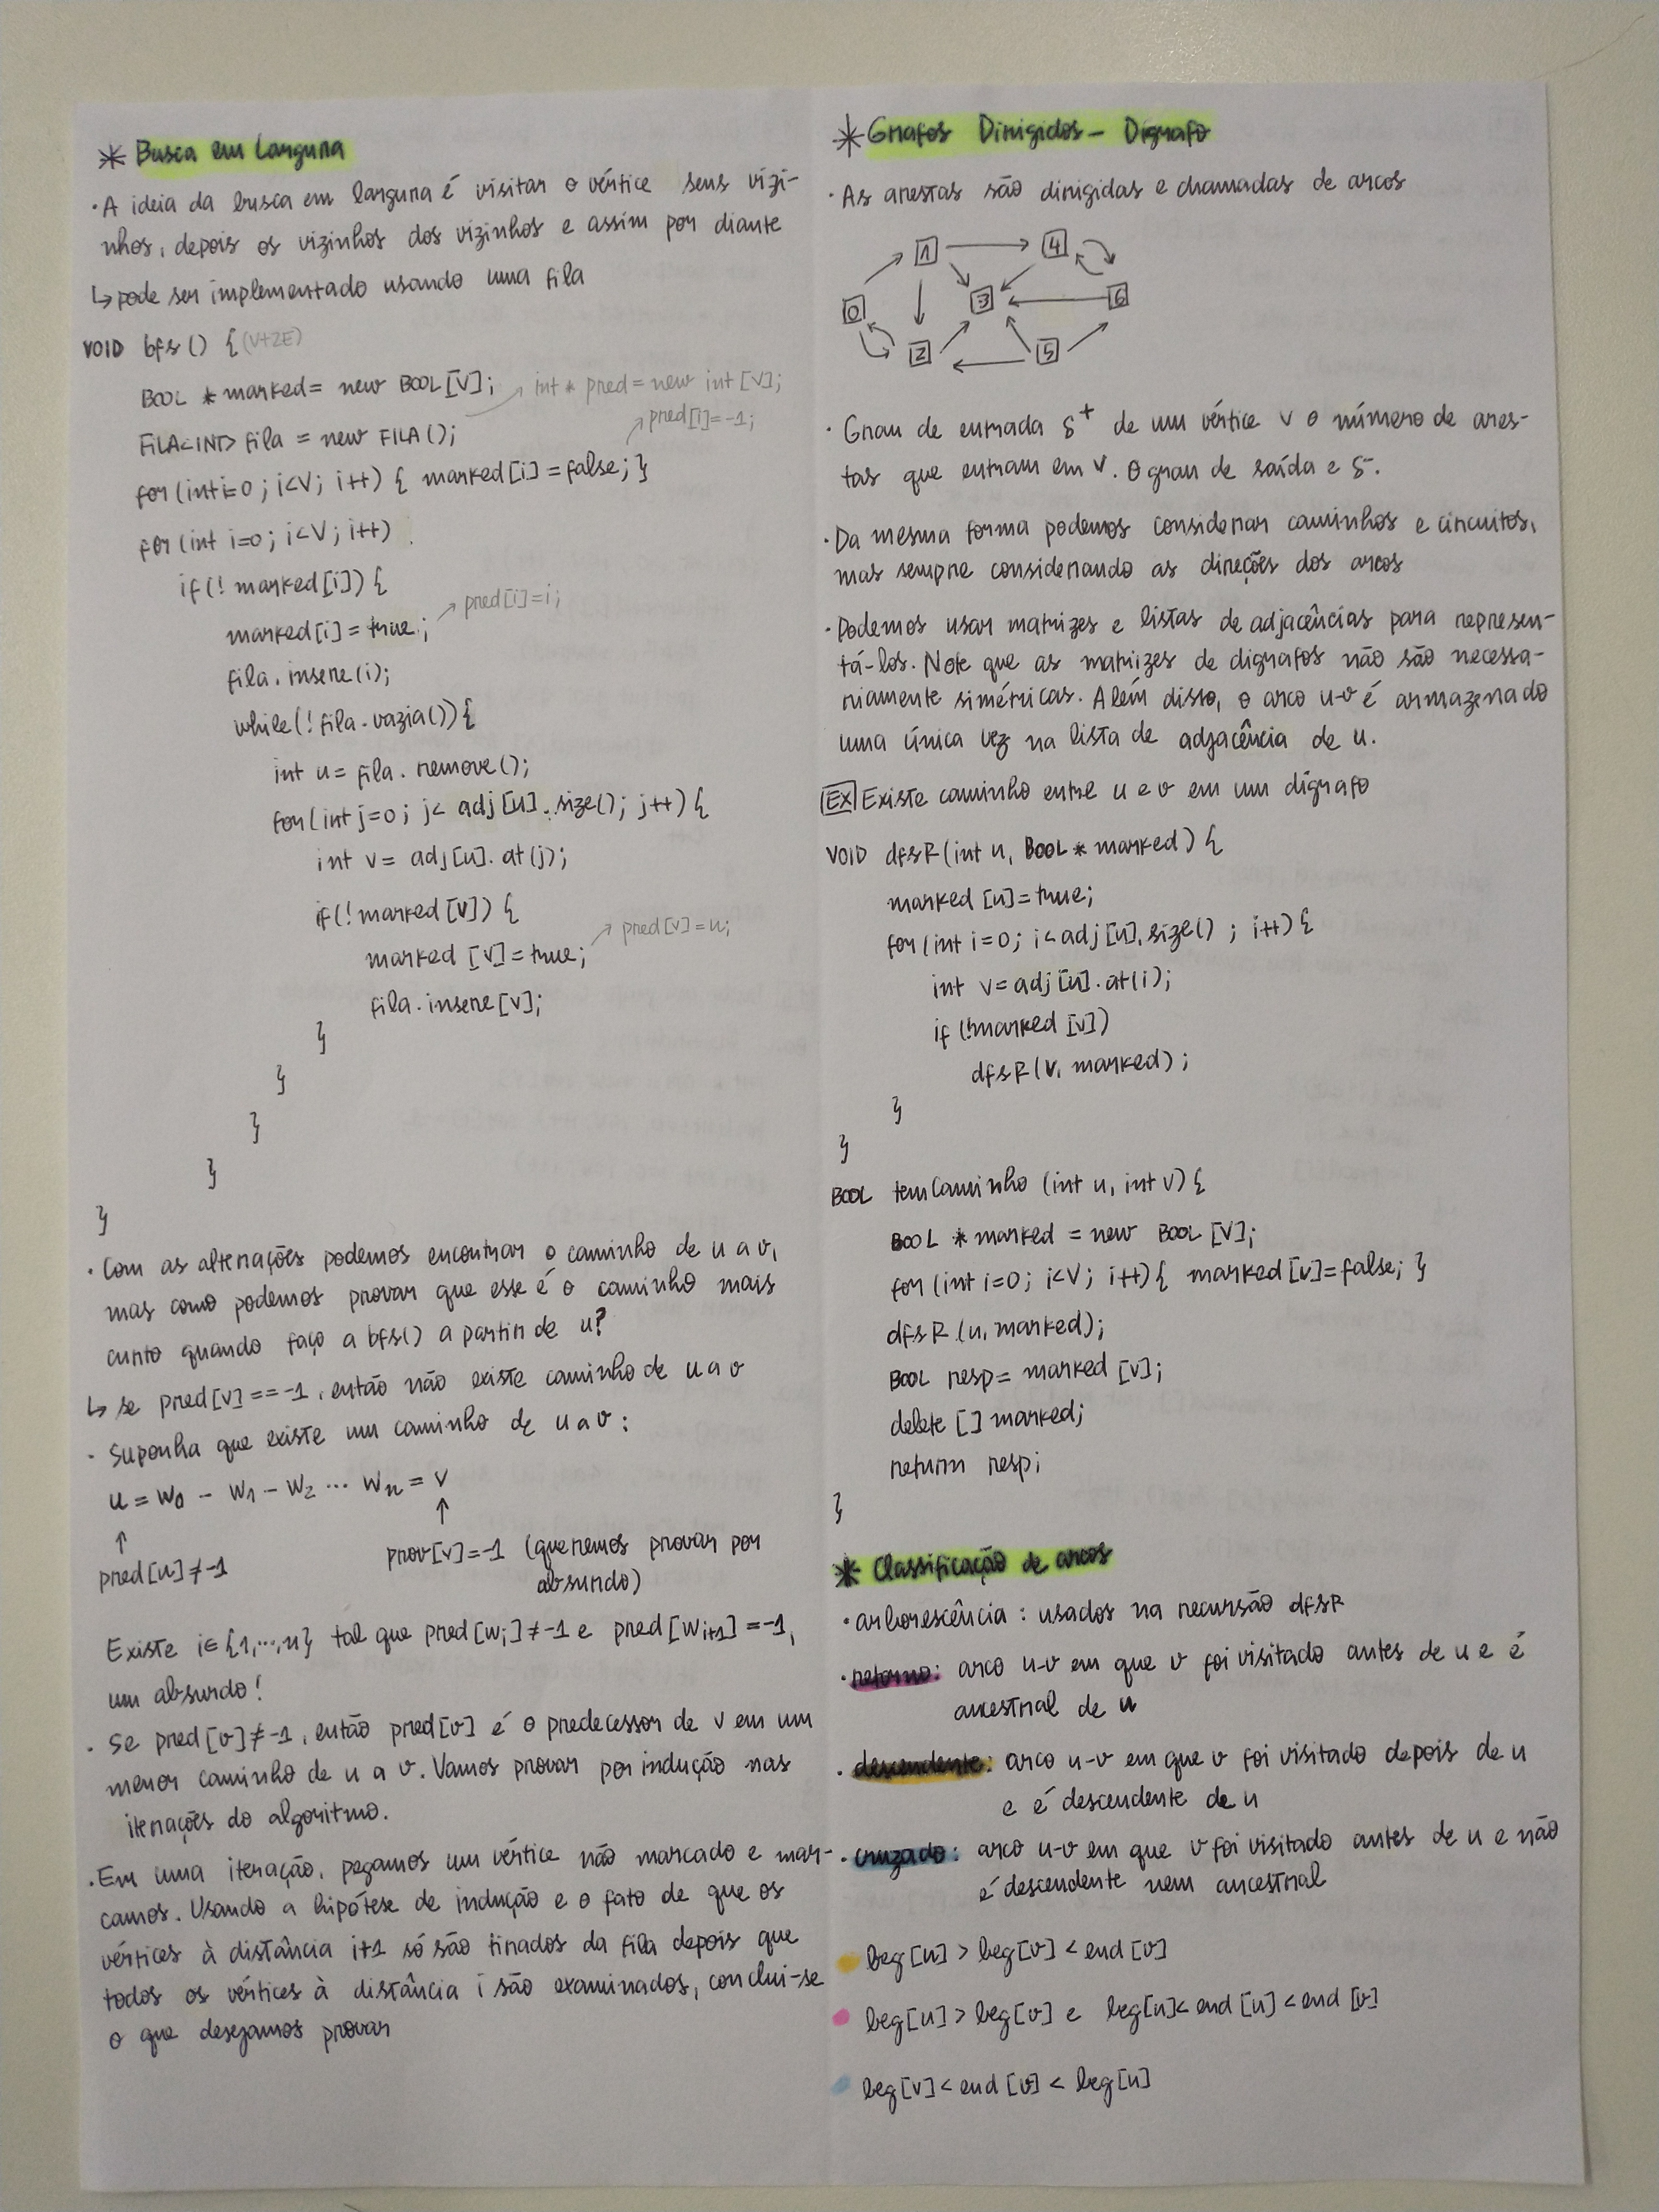 * Busca em Largura
· A ideia da busca em largura é visitar o vértice seus vizi-
nhos, depois os vizinhos dos vizinhos e assim por diante
↳ pode ser implementado usando uma fila
VOID bfs() { (V+2E)
BOOL * marked = new BOOL[V]; → int * pred = new int[V];
FILA<INT> fila = new FILA(); ↗ pred[i]=-1;
for(int i=0; i<V; i++) { marked[i]=false; }
for(int i=0; i<V; i++)
if(! marked[i]) {
marked[i]=true; ↗ pred[i]=i;
fila.insere(i);
while(!fila.vazia()){
int u= fila.remove();
for(int j=0; j< adj[u].size(); j++) {
int v= adj[u].at(j);
if(!marked[v]) {
marked [v]=true; ↗ pred[v]=u;
fila.insere[v];
}
}
}
}
}
· Com as alterações podemos encontrar o caminho de u a v,
mas como podemos provar que esse é o caminho mais
curto quando faço a bfs() a partir de u?
↳ se pred[v]==-1, então não existe caminho de u a v
· Suponha que existe um caminho de u a v:
u = w0 - w1 - w2 ... wn = v
↑ ↑
pred[u]≠-1 prov[v]=-1 (queremos provar por
absurdo)
Existe i∈{1,...,n} tal que pred[wi]≠-1 e pred[wi+1]=-1,
um absurdo!
· Se pred[v]≠-1, então pred[v] é o predecessor de v em um
menor caminho de u a v. Vamos provar por indução nas
iterações do algoritmo.
· Em uma iteração, pegamos um vértice não marcado e mar-
camos. Usando a hipótese de indução e o fato de que os
vértices à distância i+1 só são tirados da fila depois que
todos os vértices à distância i são examinados, conclui-se
o que desejamos provar
* Grafos Dirigidos - Digrafo
· As arestas são dirigidas e chamadas de arcos
1 4
0 3 6
2 5
· Grau de entrada δ+ de um vértice v o número de ares-
tas que entram em v. O grau de saída e δ-.
· Da mesma forma podemos considerar caminhos e circuitos,
mas sempre considerando as direções dos arcos
· Podemos usar matrizes e listas de adjacências para represen-
tá-los. Note que as matrizes de digrafos não são necessa-
riamente simétricas. Além disso, o arco u-v é armazenado
uma única vez na lista de adjacência de u.
EX Existe caminho entre u e v em um digrafo
VOID dfsR(int u, BOOL * marked) {
marked [u]=true;
for(int i=0; i<adj[u].size() ; i++){
int v=adj[u].at(i);
if (!marked [v])
dfsR(v, marked);
}
}
BOOL temCaminho (int u, int v) {
BOOL * marked = new BOOL [V];
for(int i=0; i<V; i++){ marked[v]=false; }
dfsR(u, marked);
BOOL resp= marked [v];
delete [] marked;
return resp;
}
* Classificação de arcos
· arborescência: usados na recursão dfsR
· retorno: arco u-v em que v foi visitado antes de u e é
ancestral de u
· descendente: arco u-v em que v foi visitado depois de u
e é descendente de u
· cruzado: arco u-v em que v foi visitado antes de u e não
é descendente nem ancestral
beg[u] > beg[v] < end[v]
beg[u] > beg[v] e beg[u]< end[u] < end[v]
beg[v] < end[v] < beg[u]